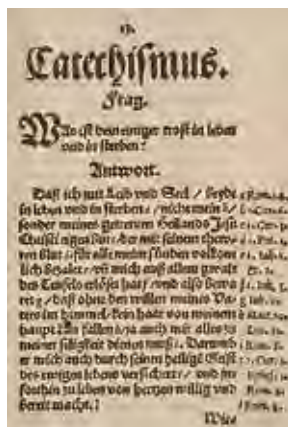 13.
Catechismus.
Frag.
Was ist dein einiger trost in leben
vnd in sterben?
Antwort.
Daß ich mit Leib vnd Seel / beyde
in leben vnd in sterben / nicht mein /
sonder meines getrewen Heilands Jesu
Christi eigen bin / der mit seinem thew-
ren blut / für alle meine sünden volkom-
lich bezalet / vñ mich auß allem gwalt
des Teufels erlöset hat / vnd also bewa-
ret / daß ohne den willen meines Va-
ters im himmel / kein haar von meinem
haupt kan fallen / ja auch mir alles zu
meiner seligkeit dienen muß. Darumb
er mich auch durch seinen heilige Geist
des ewigen lebens versichert / vnd jm
forthin zu leben von hertzen willig vnd
bereit macht.